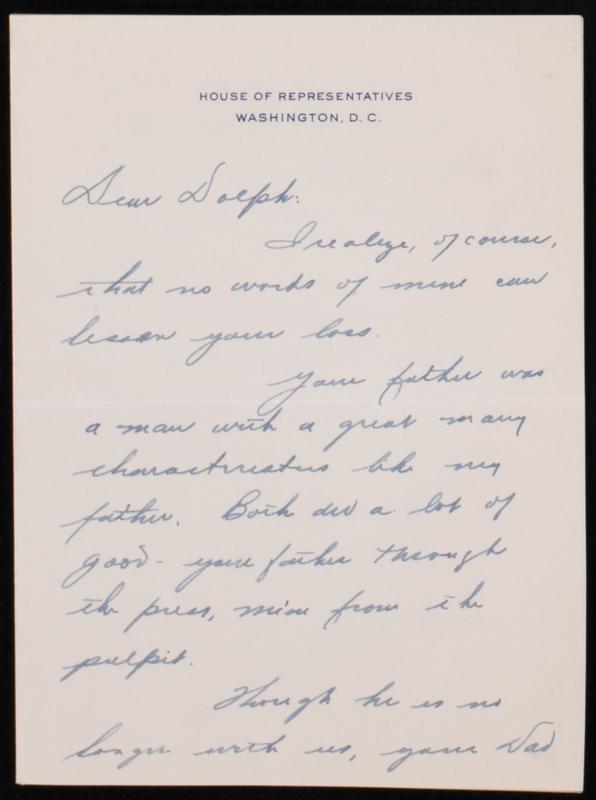 HOUSE OF REPRESENTATIVES
WASHINGTON, D. C.
Dear Dolph:
I realize, of course,
that no words of mine can
lessen your loss.
Your father was
a man with a great many
characteristics like my
father. Both did a lot of
good - your father through
the press, mine from the
pulpit.
Though he is no
longer with us, your Dad